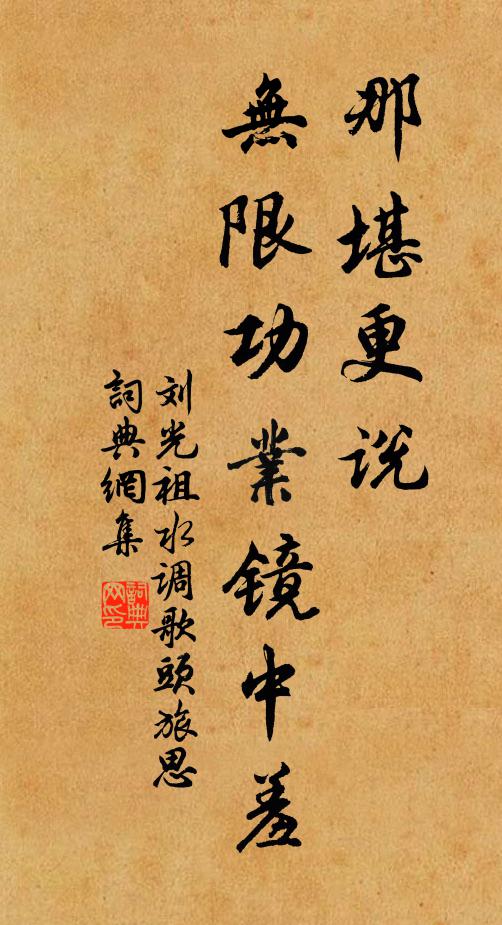 那堪更说
無限功業镜中羞
刘光祖水调歌頭旅思
詞典網集
詞典网印